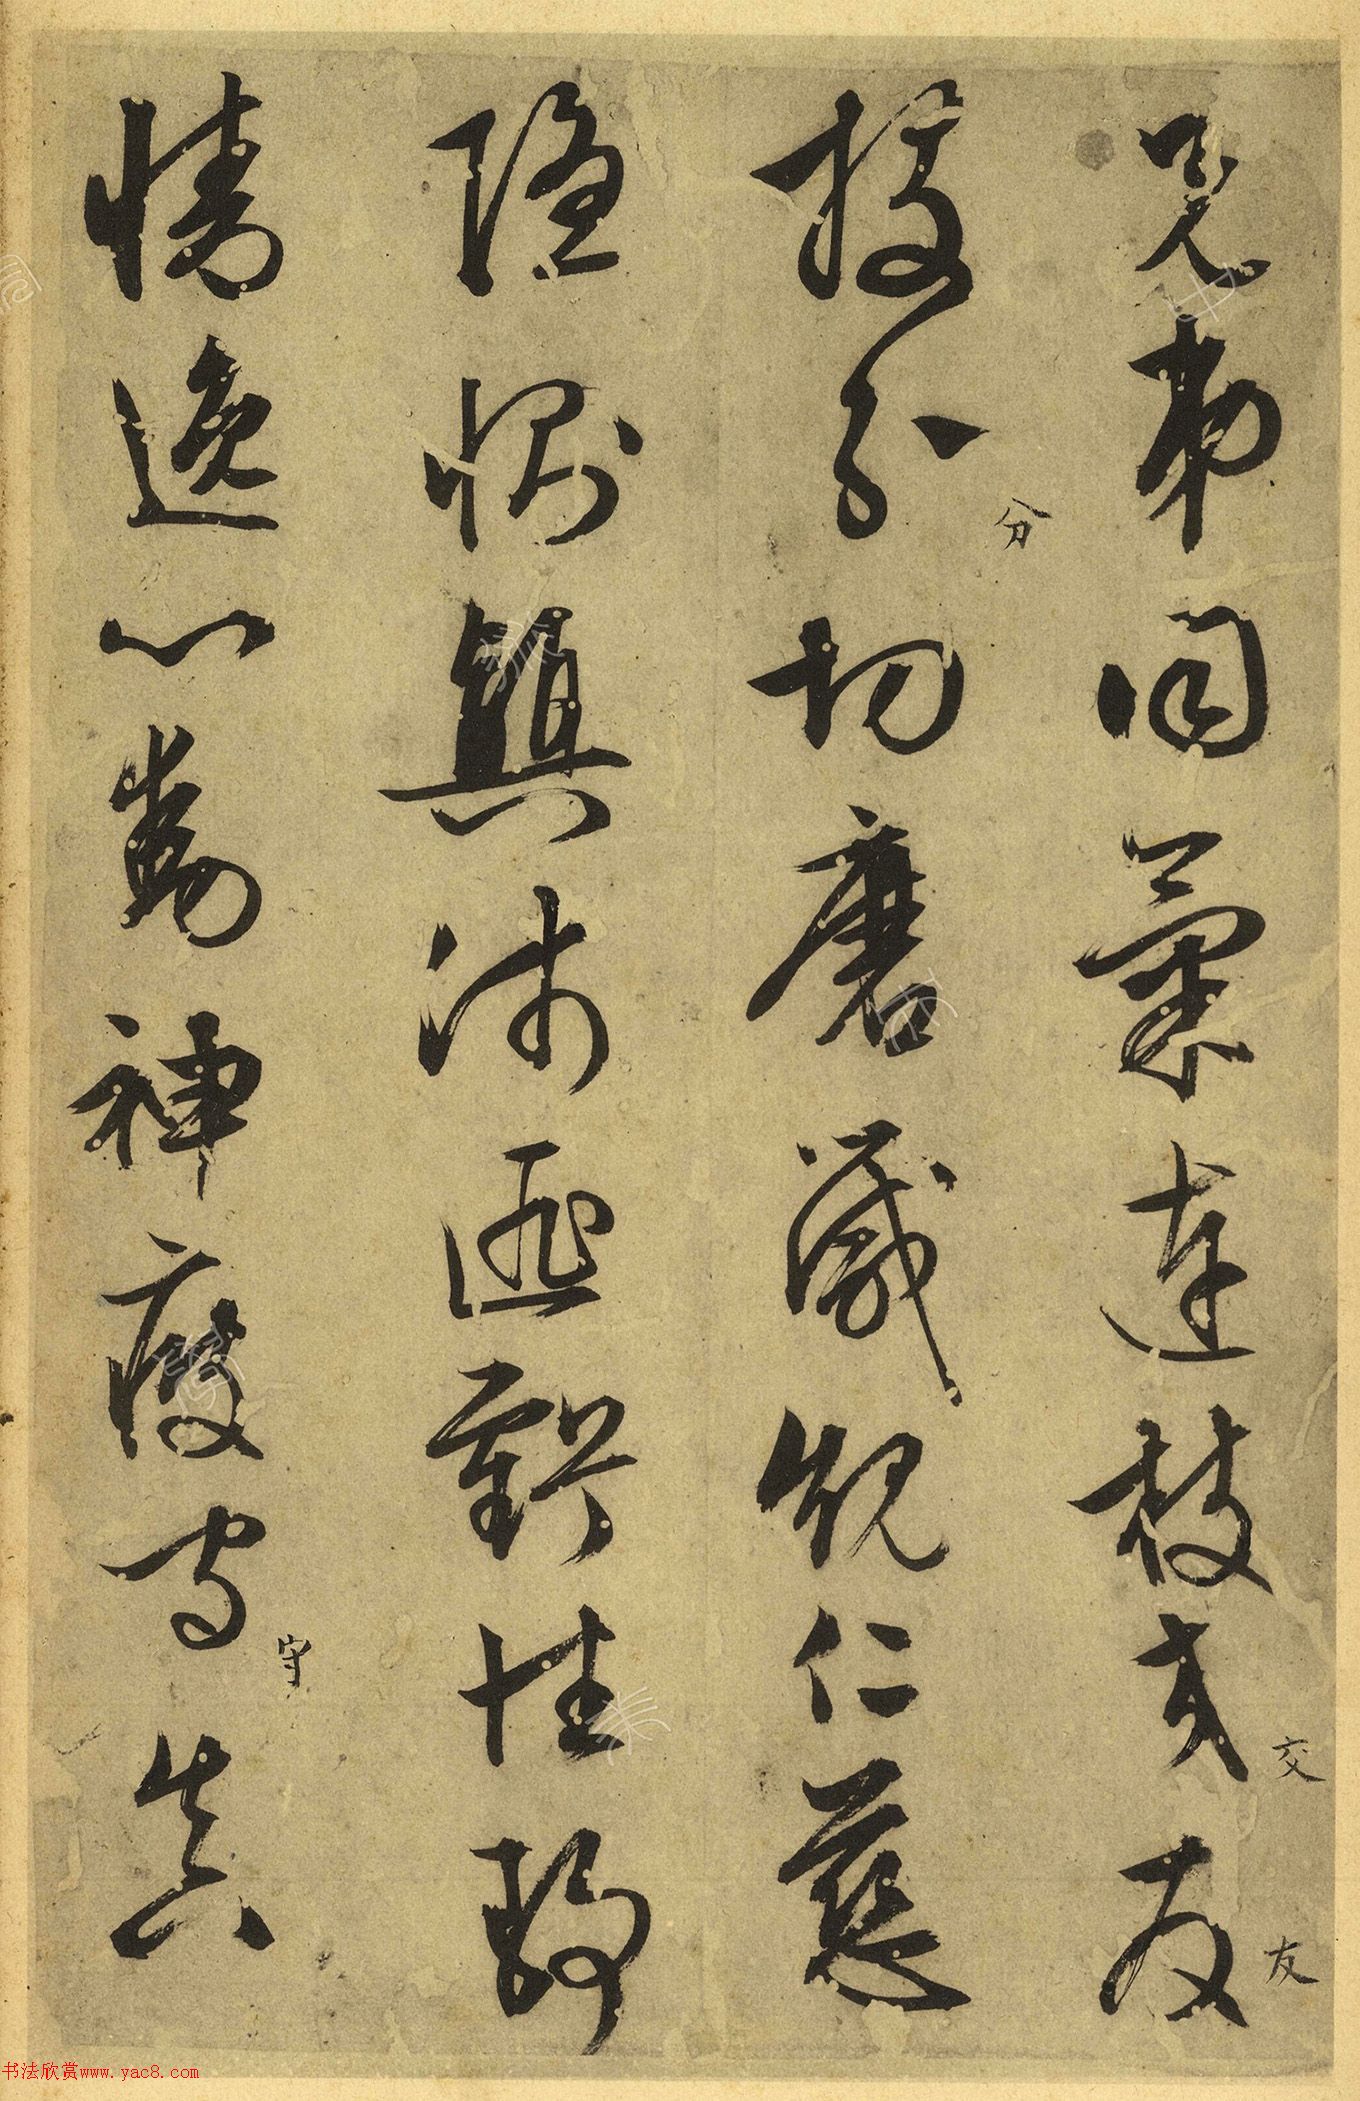 兄弟同氣連枝交友
交
友
投分切磨箴規仁慈
分
隱惻顛沛匪虧性靜
情逸心動神疲守真
守
书法欣赏www.yac8.com